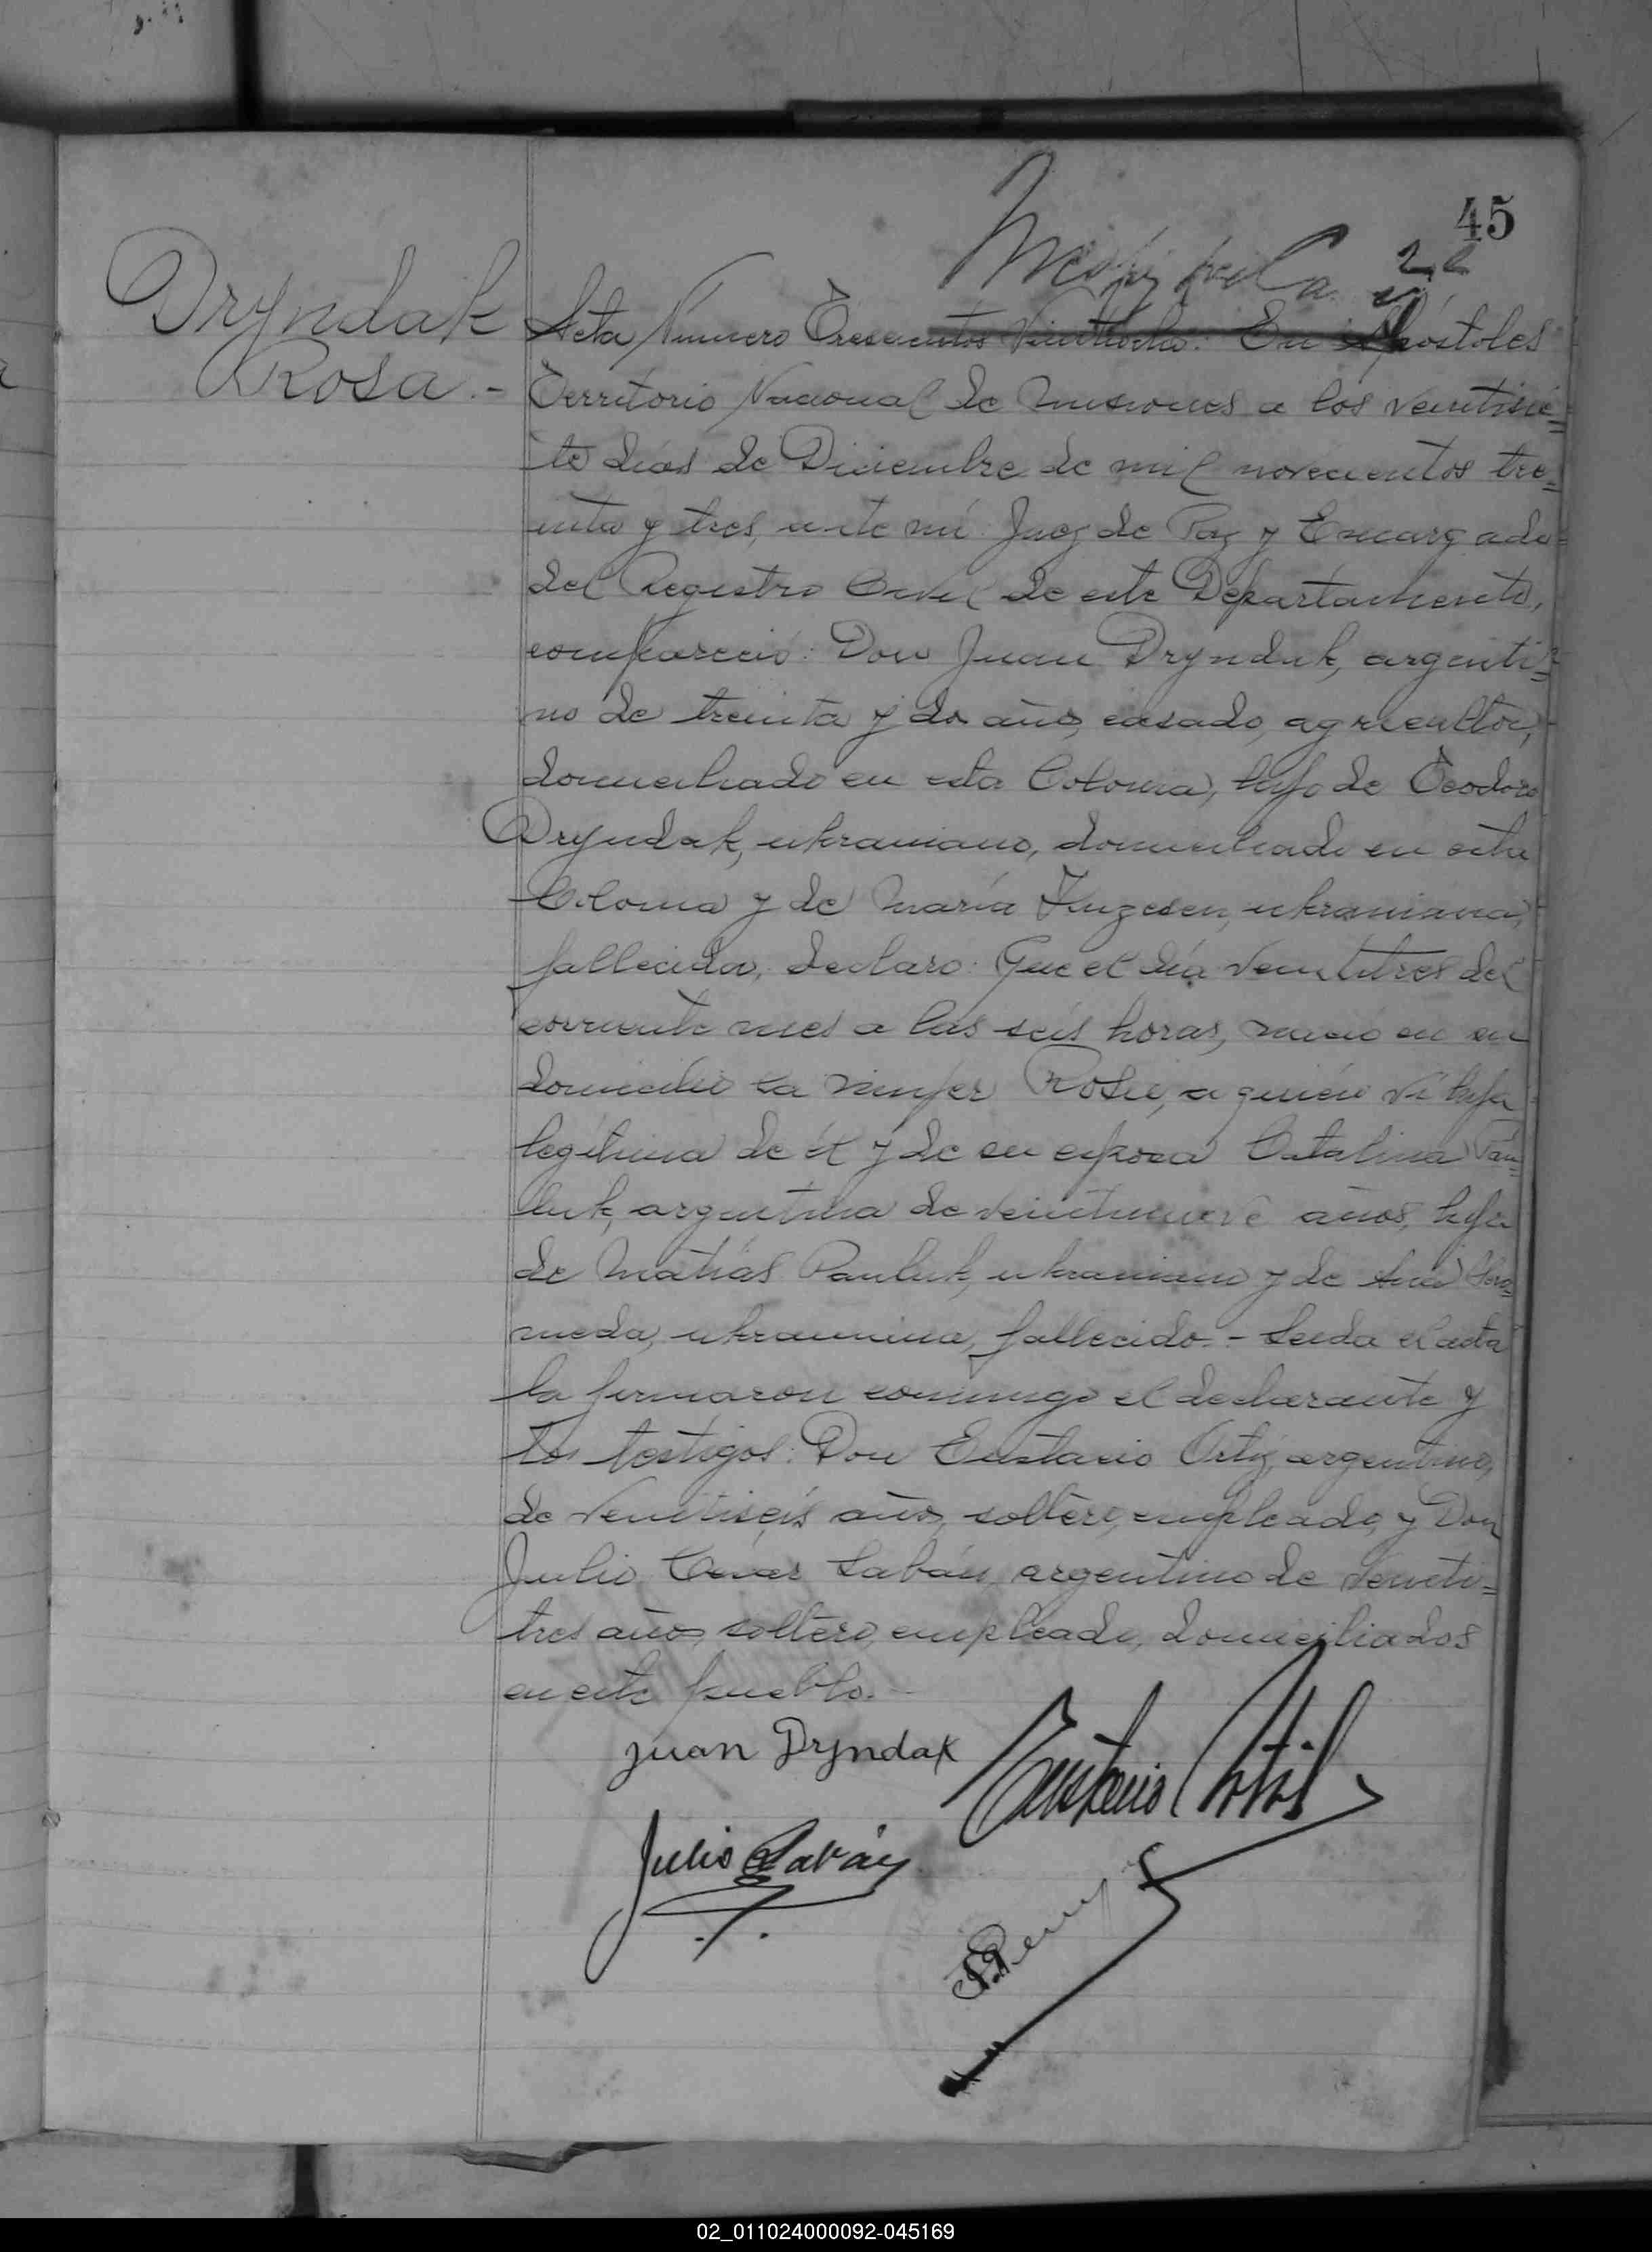 45
Dryndak
Rosa.-
Acta Número Trescientos Veintiocho: En Apóstoles
Territorio Nacional de Misiones a los veintisie-
te dias de Diciembre de mil novecientos tre-
inta y tres, ante mí Juez de Paz y Encargado
del Registro Civil de este Departamento,
compareció: Don Juan Dryndak, argenti-
no de treinta y dos años, casado, agricultor,
domiciliado en esta Colonia, hijo de Teodoro
Dryndak, ukraniano, domiciliado en esta
Colonia y de María, ukraniana,
fallecida, declaro: Que el día veintitres del
corriente mes a las seis horas, nació en su
domicilio la mujer Rosa, a quién ví hija
legítima de él y de su esposa Catalina Pau-
luk, argentina de veintinueve años, hija
de Matías Pauluk, ukraniano y de Ana
meda, ukraniana, fallecido.- Leida el acta
la firmaron conmigo el declarante y
los testigos: Don Eustacio Ortiz, argentino,
de veintiseis años, soltero, empleado, y Don
Julio César Labán, argentino de veinti-
tres años, soltero, empleado, domiciliados
en este pueblo.-
Juan Dryndak
Eustacio Ortiz
Julio C Labán
02_011024000092-045169